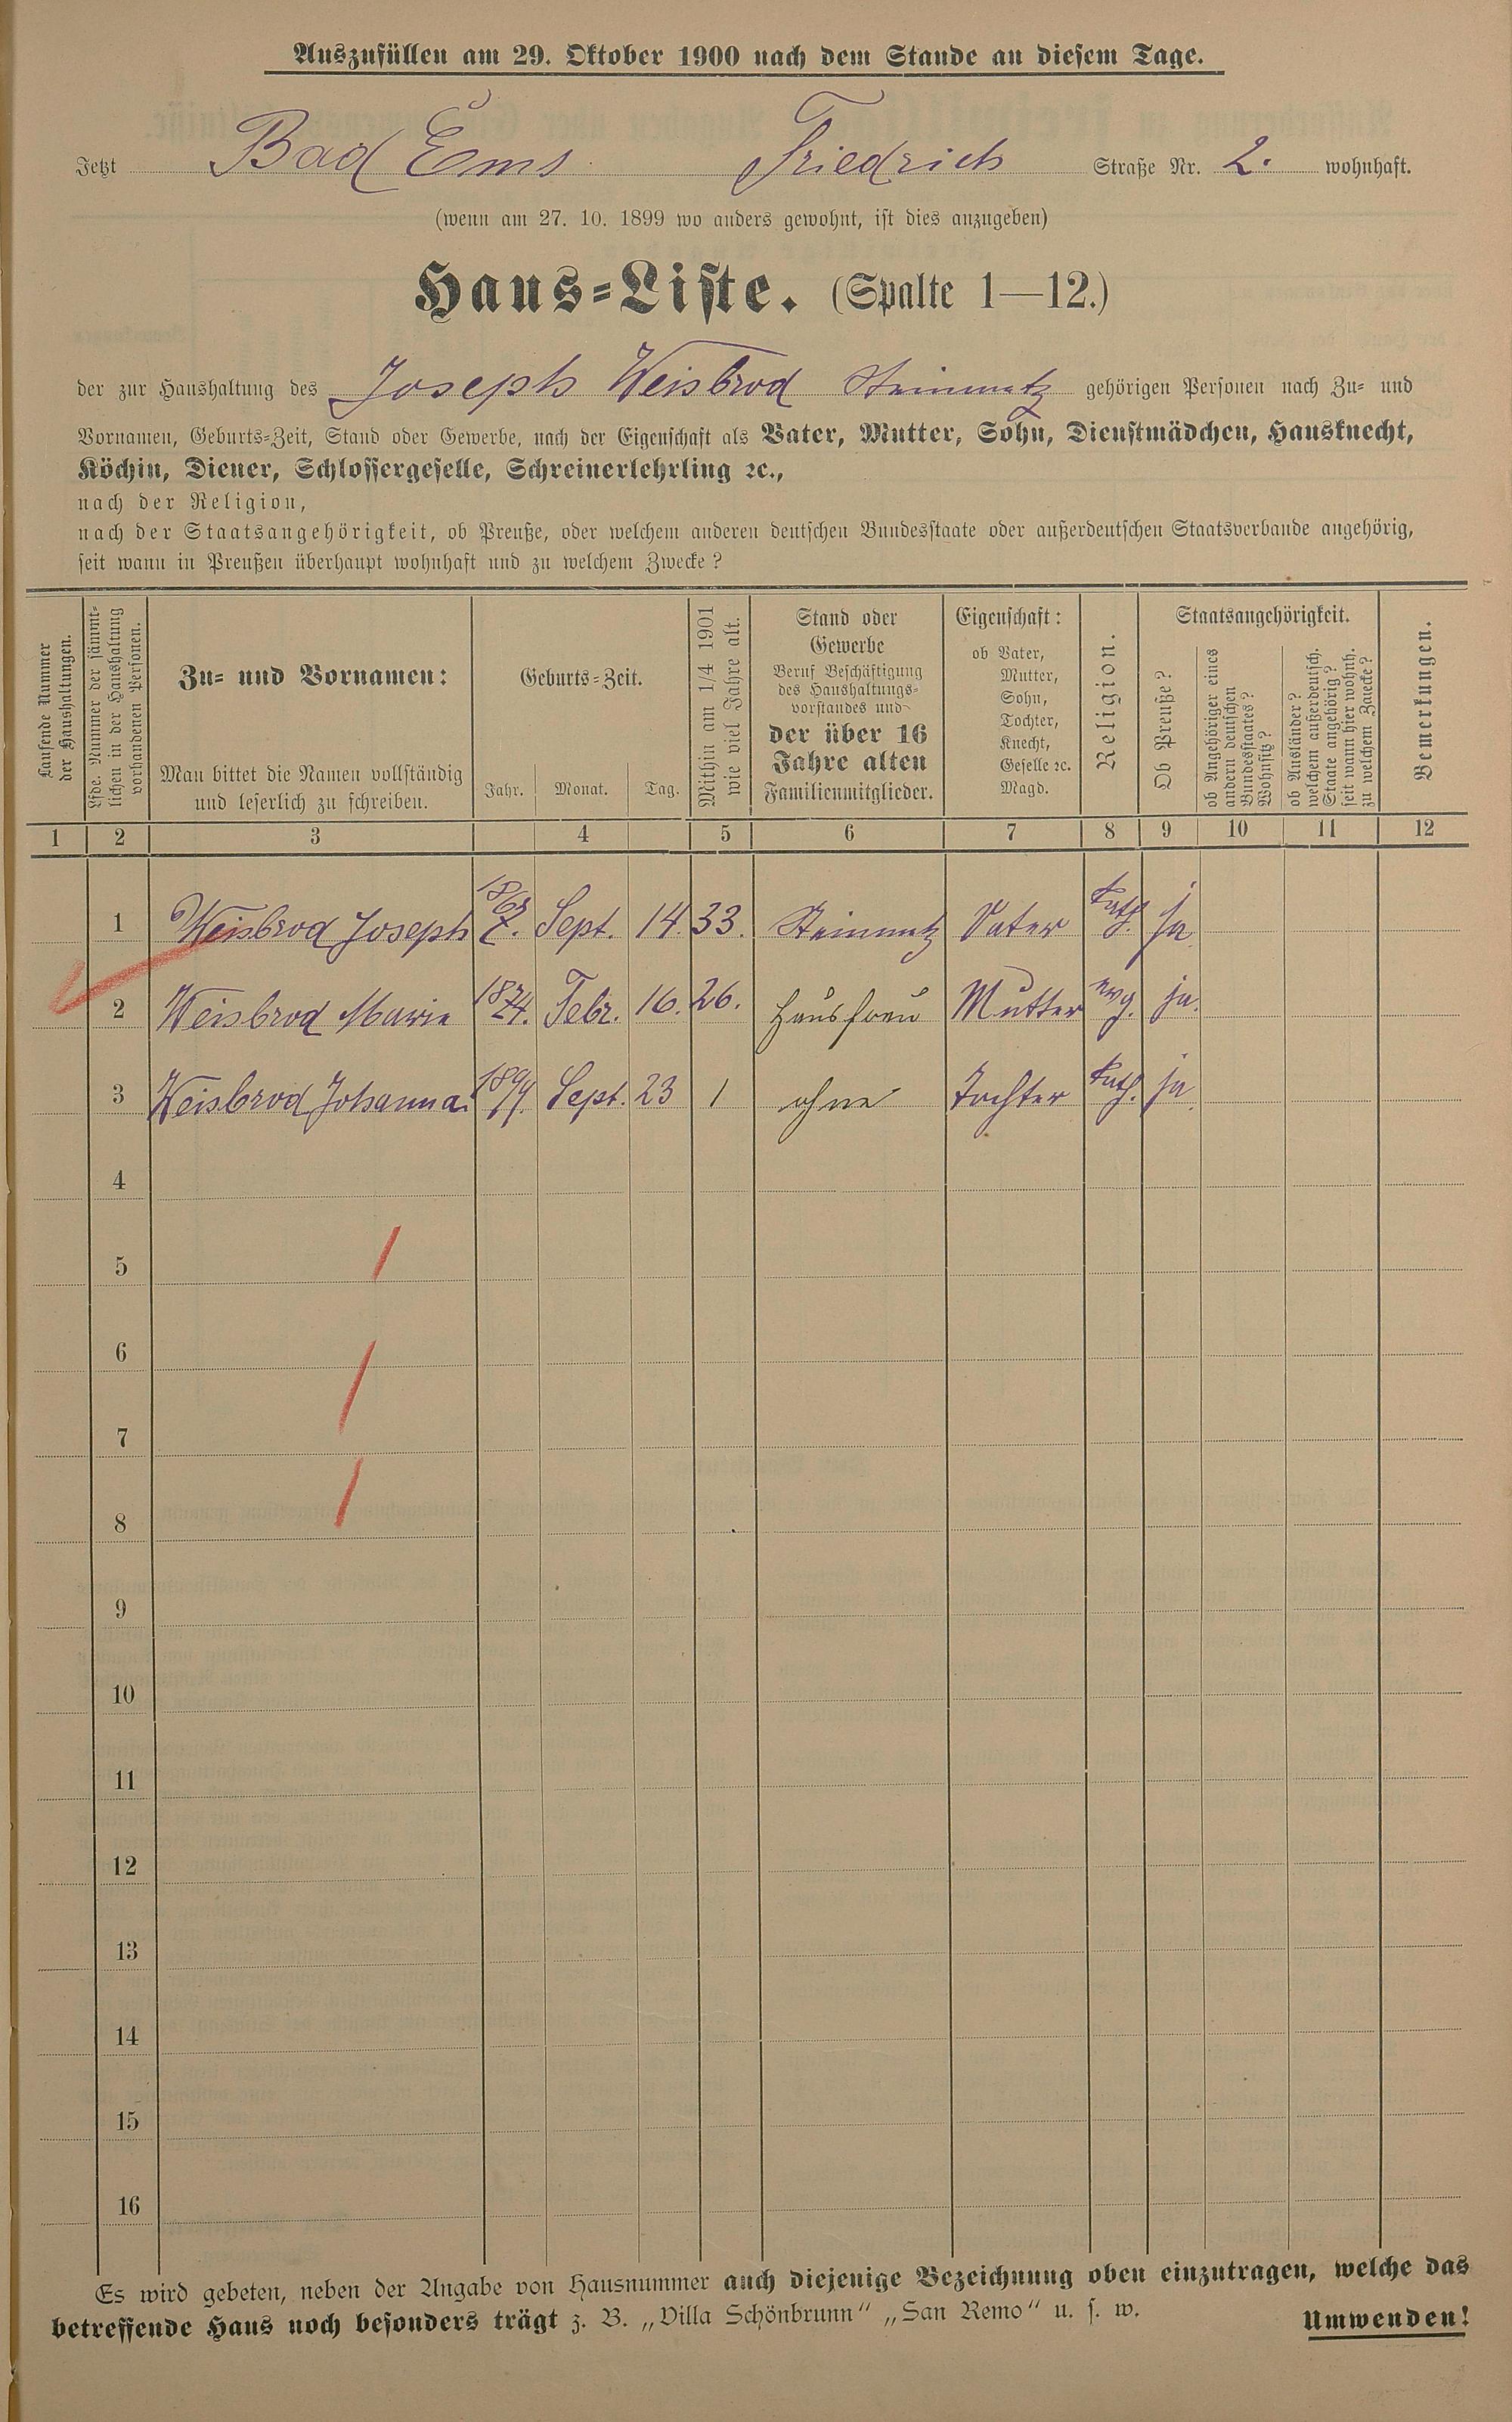 Auszufüllen am 29. Oktober 1900 nach dem Stande an diesem Tage.
Jetzt Bad Ems Friedrich Straße Nr. 2. wohnhaft.
(wenn am 27. 10. 1899 wo anders gewohnt, ist dies anzugeben)
Haus-Liste. (Spalte 1—12.)
der zur Haushaltung des Joseph Weisbrod Steinmetz gehörigen Personen nach Zu- und
Vornamen, Geburts-Zeit, Stand oder Gewerbe, nach der Eigenschaft als Vater, Mutter, Sohn, Dienstmädchen, Hausknecht,
Köchin, Diener, Schlossergeselle, Schreinerlehrling ꝛc.,
nach der Religion,
nach der Staatsangehörigkeit, ob Preuße, oder welchem anderen deutschen Bundesstaate oder außerdeutschen Staatsverbande angehörig,
seit wann in Preußen überhaupt wohnhaft und zu welchem Zwecke?
Laufende Nummer
der Haushaltungen.
Lfde. Nummer der sämmt-
lichen in der Haushaltung
vorhandenen Personen.
Zu- und Vornamen:
Man bittet die Namen vollständig
und leserlich zu schreiben.
Geburts-Zeit.
Jahr. Monat. Tag.
Mithin am 1/4 1901
wie viel Jahre alt.
Stand oder
Gewerbe
Beruf Beschäftigung
des Haushaltungs-
vorstandes und
der über 16
Jahre alten
Familienmitglieder.
Eigenschaft:
ob Vater,
Mutter,
Sohn,
Tochter,
Knecht,
Geselle ꝛc.
Magd.
Religion.
Staatsangehörigkeit.
Ob Preuße?
ob Angehöriger eines
andern deutschen
Bundesstaates?
Wohnsitz?
ob Ausländer?
welchem außerdeutsch.
Staate angehörig?
seit wann hier wohnh.
zu welchem Zwecke?
Bemerkungen.
1 2 3 4 5 6 7 8 9 10 11 12
1 Weisbrod Joseph 1867. Sept. 14. 33. Steinmetz Vater kath. ja
2 Weisbrod Marie 1874. Febr. 16. 26. Hausfrau Mutter evg. ja.
3 Weisbrod Johanna. 1899. Sept. 23 1 ohne Tochter kath. ja
4
5
6
7
8
9
10
11
12
13
14
15
16
Es wird gebeten, neben der Angabe von Hausnummer auch diejenige Bezeichnung oben einzutragen, welche das
betreffende Haus noch besonders trägt z. B. „Villa Schönbrunn“ „San Remo“ u. s. w. Umwenden!